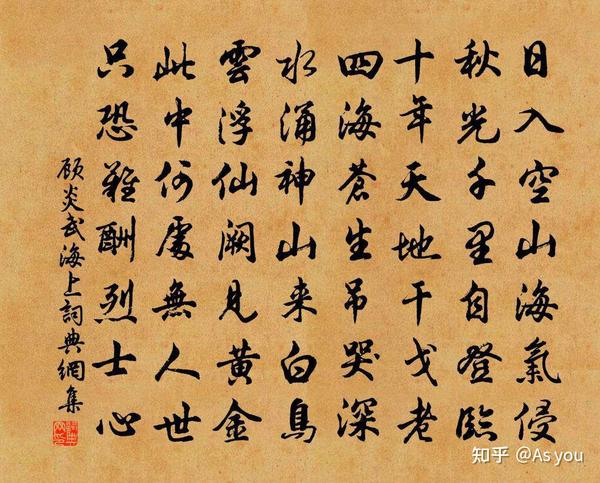 日入空山海氣侵
秋光千里自登臨
十年天地干戈老
四海蒼生吊哭深
水涌神山来白鳥
雲浮仙阙見黄金
此中何處無人世
只恐難酬烈士心
顾炎武海上詞典網集
知乎 @As you